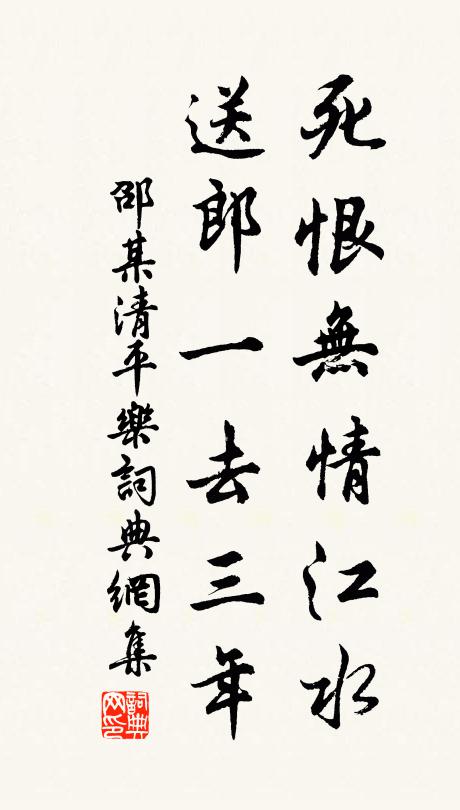 死恨無情江水
送郎一去三年
邵某清平樂詞典網集
詞典網印